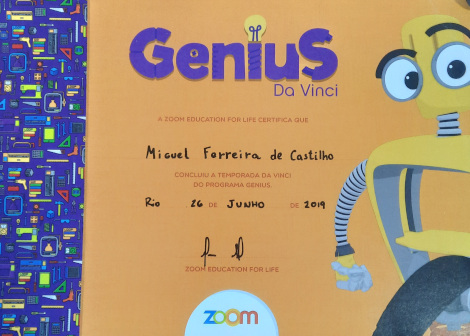 Genius
Da Vinci
A ZOOM EDUCATION FOR LIFE CERTIFICA QUE
Miguel Forreira de Castilho
CONCLUIU A TEMPORADA DA VINCI
DO PROGRAMA GENIUS.
Rio 26 DE JUNHO DE 2019
ZOOM EDUCATION FOR LIFE
zoom